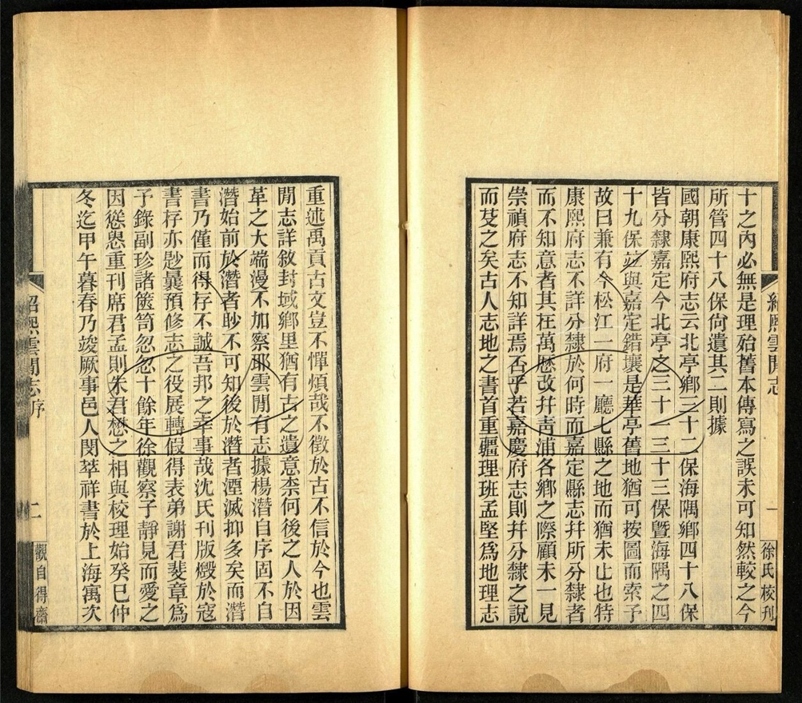 十之內必無是理殆舊本傳寫之誤未可知然較之今
所管四十八保尙遺其二則據
國朝康熙府志云北亭鄉三十二保海隅鄉四十八保
皆分隸嘉定今北亭之三十一三十三保暨海隅之四
十九保並與嘉定錯壤是華亭舊地猶可按圖而索予
故曰兼有今松江一府一廳七縣之地而猶未止也特
康熙府志不詳分隸於何時而嘉定縣志幷所分隸者
而不知意者其在萬歷改幷靑浦各鄉之際顧未一見
崇禎府志不知詳焉否乎若嘉慶府志則幷分隸之說
而芟之矣古人志地之書首重疆理班孟堅爲地理志
紹熙雲閒志
一
徐氏校刊
重述禹貢古文豈不憚煩哉不徵於古不信於今也雲
閒志詳敘封域鄉里猶有古之遺意柰何後之人於因
革之大耑漫不加察耶雲閒有志據楊潛自序固不自
潛始前於潛者眇不可知後於潛者湮滅抑多矣而潛
書乃僅而得存不誠吾邦之幸事哉沈氏刊版燬於寇
書存亦尟曩預修志之役展轉假得表弟謝君斐章爲
予錄副珍諸篋笥忽忽十餘年徐觀察子靜見而愛之
因慫恿重刊席君孟則朱君懋之相與校理始癸巳仲
冬迄甲午暮春乃竣厥事邑人閔萃祥書於上海寓次
紹熙雲閒志序
二
觀自得齋